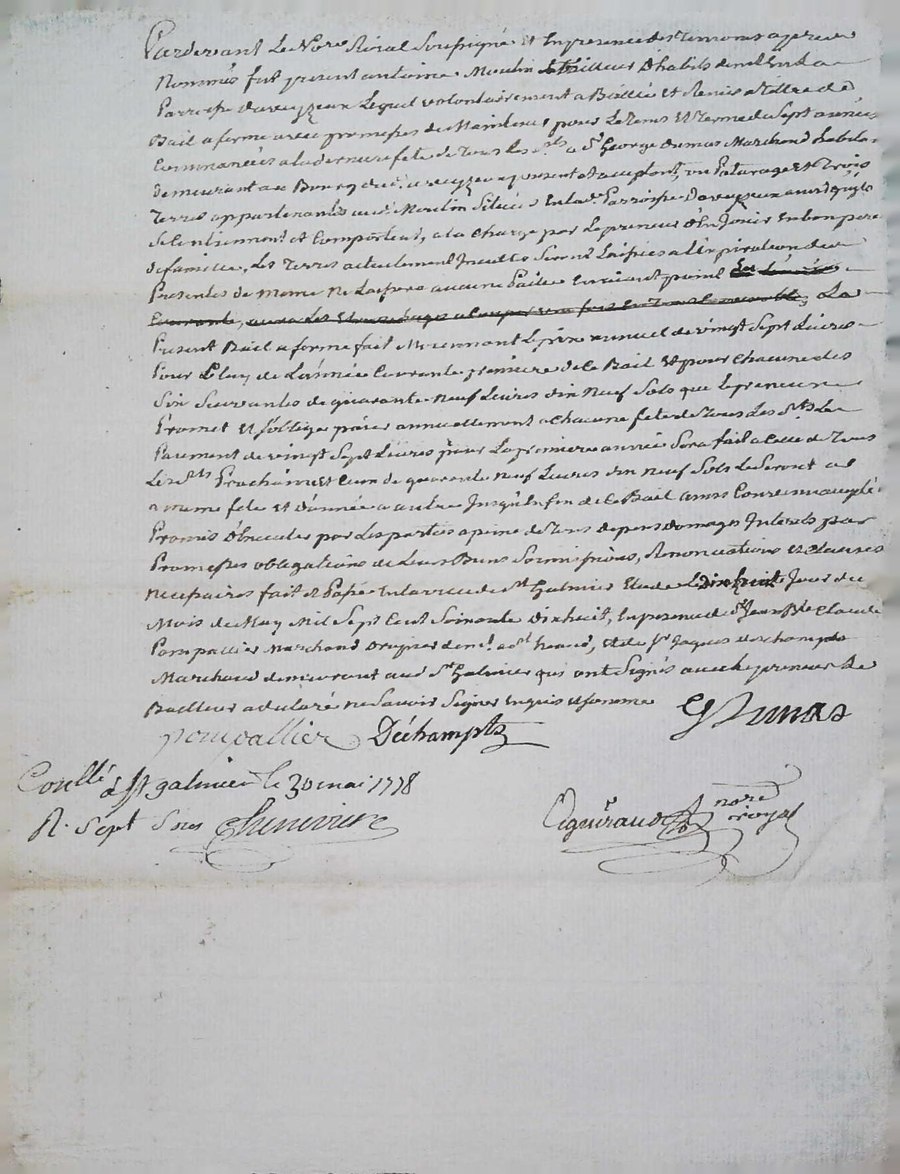 Pardevant Le No.re Roial Soussigné et En presence des temoins apres
Nommés fut present antoine Moulin tailleur D'habits dem.t En La
Parroisse daveyzeux Lequel volontairement a Baillé et Remis a Tittre de
Bail a ferme avec promesses de Maintenir pour Le Tems Et Terme de Sept années
Commancées a la derniere fete de Tous Les S.ts a S.r George Dumas Marchand
demeurant au Bourg dud. aveyzeux present et acceptant, un Paturage Et Trois
Terres appartenantes aud. Moulin Situés En lad. Parroisse Daveyzeux
Se Contiennent et Comportent, a la Charge par Le preneur D'En Jouir En bon pere
de famille, Les Terres actuellement Seront Laissées a L'Expiration des
Presentes de meme Ne Laissera aucune Paille point
Courante, La
Present Bail a ferme fait Moiennant Le prix annuel de vingt Sept Livres
Pour Celuy de L'année Courante premiere de ce Bail Et pour Chacune des
Six Suivantes de quarante Neuf Livres dix Neuf Sols que Le preneur
Promet Et s'oblige païer annuellement a chacune fete de Tous Les S.ts Le
Paiment de vingt Sept Livres pour La premiere année Sera fait a Celle de Tous
Les S.ts Prochain Et Ceux de quarante Neuf Livres dix Neuf Sols Le Seront a
meme fete et D'année a autre Jusqu'En fin de ce Bail ainsi Convenu
Promis D'Executer par Les parties a peine de Tous depens Domages Interets par
Promesses obligations de Leurs Biens Soumissions, Renonciations et Clauses
Necessaires fait Et Passé En la ville de S.t Galmier Etude Le dix huit Jour du
Mois de May Mil Sept Cent Soixante Dix huit, En presence de S.r Jean B.te Claude
Pompallier Marchand de S.r Jaques Deschampts
Marchand demeurant aud. S.t Galmier qui ont Signés avec Le preneur Le
Bailleur a declaré ne Savoir Signer Enquis et Somme
GDumas
pompallier Déchampts
Conllé à st galmier le 30 mai 1778
R. Sept Sous Chineviere
Aguiraud no.re royal